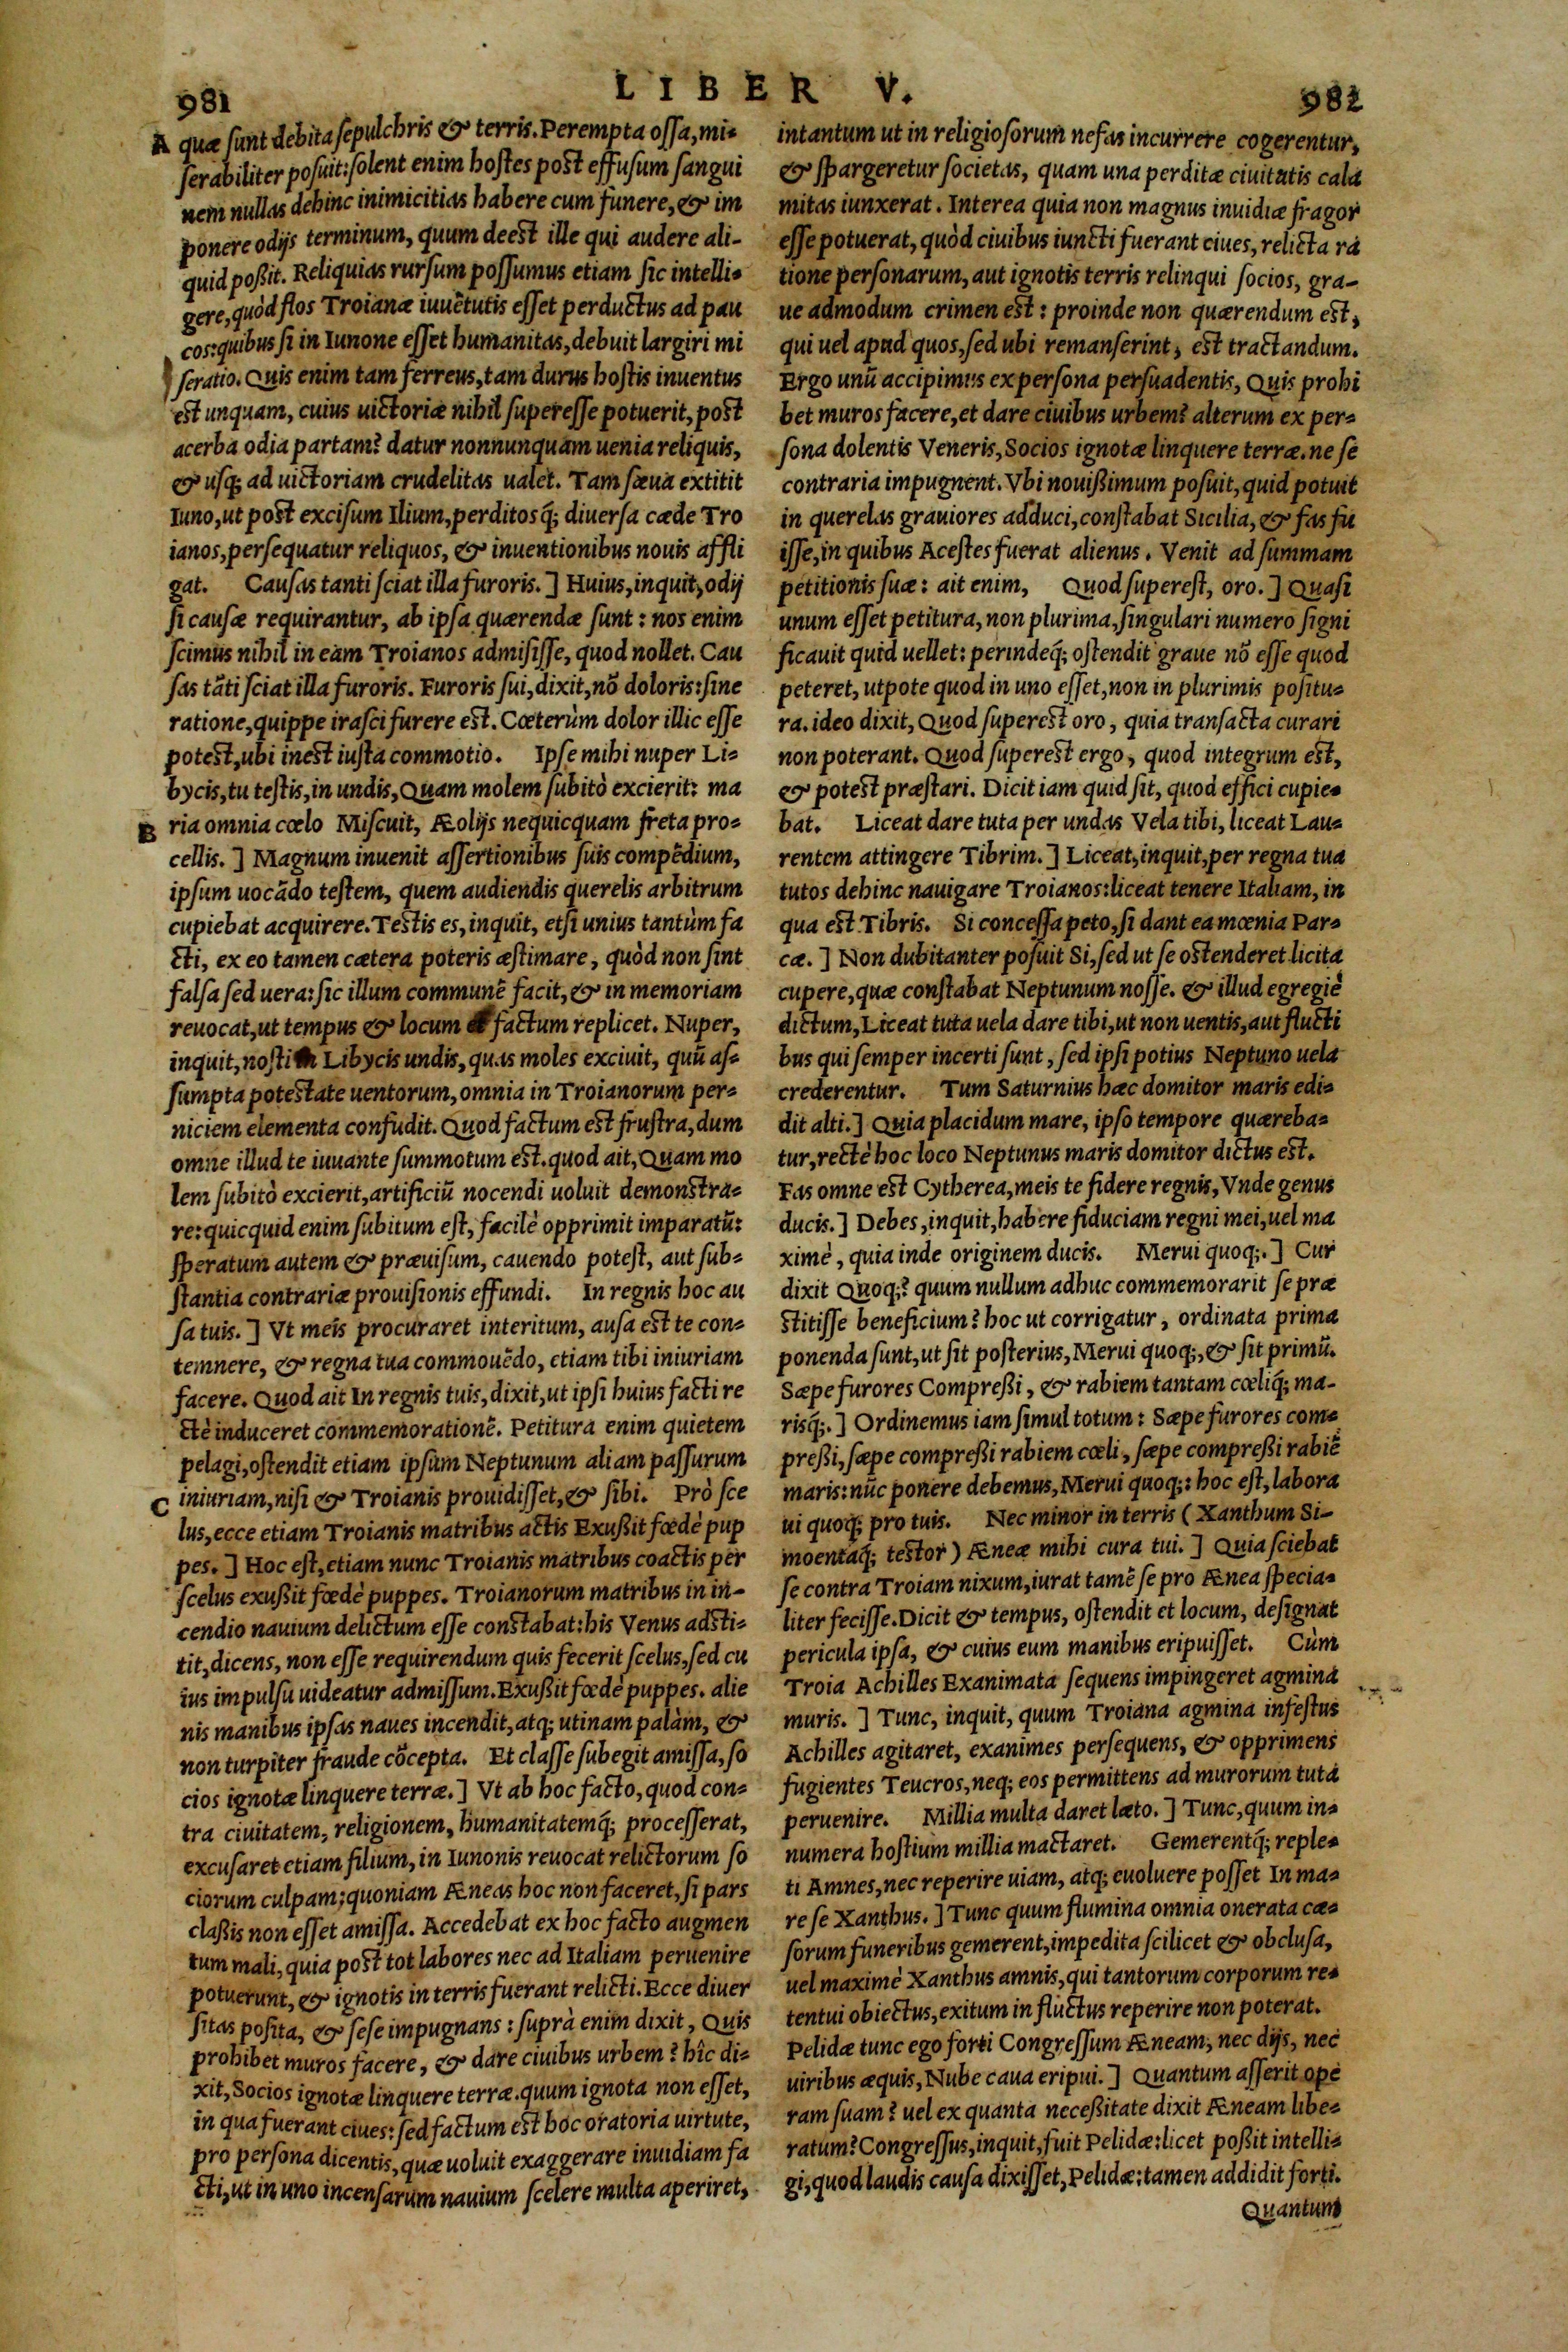 981
LIBER V.
982
A quæ sunt debita sepulchris & terris. Perempta ossa, mi-
serabiliter posuit: solent enim hostes post effusum sangui
nem nullas dehinc inimicitias habere cum funere, & im
ponere odijs terminum, quum deest ille qui audere ali-
quid poßit. Reliquias rursum possumus etiam sic intelli-
gere, quòd flos Troianæ iuuẽtutis esset perductus ad pau
cos: quibus si in Iunone esset humanitas, debuit largiri mi
seratio. Quis enim tam ferreus, tam durus hostis inuentus
est unquam, cuius uictoriæ nihil superesse potuerit, post
acerba odia partam? datur nonnunquam uenia reliquis,
& usq; ad uictoriam crudelitas ualet. Tam sæua extitit
Iuno, ut post excisum Ilium, perditosq́; diuersa cæde Tro
ianos, persequatur reliquos, & inuentionibus nouis affli
gat. Causas tanti sciat illa furoris. ] Huius, inquit, odij
si causæ requirantur, ab ipsa quærendæ sunt : nos enim
scimus nihil in eam Troianos admisisse, quod nollet. Cau
sas tãti sciat illa furoris. Furoris sui, dixit, nõ doloris: sine
ratione, quippe irasci furere est. Cœterùm dolor illic esse
potest, ubi inest iusta commotio. Ipse mihi nuper Li-
bycis, tu testis, in undis, Quam molem subitò excierit: ma
B ria omnia cœlo Miscuit, Æolijs nequicquam freta pro-
cellis. ] Magnum inuenit assertionibus suis compẽdium,
ipsum uocãdo testem, quem audiendis querelis arbitrum
cupiebat acquirere. Testis es, inquit, etsi unius tantùm fa
cti, ex eo tamen cætera poteris æstimare, quòd non sint
falsa sed uera: sic illum communẽ facit, & in memoriam
reuocat, ut tempus & locum et factum replicet. Nuper,
inquit, nosti in Libycis undis, quas moles exciuit, quũ as-
sumpta potestate uentorum, omnia in Troianorum per-
niciem elementa confudit. Quod factum est frustra, dum
omne illud te iuuante summotum est. quod ait, Quam mo
lem subitò excierit, artificiũ nocendi uoluit demonstra-
re: quicquid enim subitum est, facilè opprimit imparatũ:
speratum autem & præuisum, cauendo potest, aut sub-
stantia contrariæ prouisionis effundi. In regnis hoc au
sa tuis. ] Vt meis procuraret interitum, ausa est te con-
temnere, & regna tua commouẽdo, etiam tibi iniuriam
facere. Quod ait In regnis tuis, dixit, ut ipsi huius facti re
ctè induceret commemorationẽ. Petitura enim quietem
pelagi, ostendit etiam ipsum Neptunum aliam passurum
C iniuriam, nisi & Troianis prouidisset, & sibi. Prò sce
lus, ecce etiam Troianis matribus actis Exußit fœdè pup
pes. ] Hoc est, etiam nunc Troianis matribus coactis per
scelus exußit fœdè puppes. Troianorum matribus in in-
cendio nauium delictum esse constabat: his Venus adsti-
tit, dicens, non esse requirendum quis fecerit scelus, sed cu
ius impulsu uideatur admissum. Exußit fœdè puppes. alie
nis manibus ipsas naues incendit, atq; utinam palàm, &
non turpiter fraude cõcepta. Et classe subegit amissa, so
cios ignotæ linquere terræ. ] Vt ab hoc facto, quod con-
tra ciuitatem, religionem, humanitatemq́; processerat,
excusaret etiam filium, in Iunonis reuocat relictorum so
ciorum culpam; quoniam Æneas hoc non faceret, si pars
claßis non esset amissa. Accedebat ex hoc facto augmen
tum mali, quia post tot labores nec ad Italiam peruenire
potuerunt, & ignotis in terris fuerant relicti. Ecce diuer
sitas posita, & sese impugnans : suprà enim dixit, Quis
prohibet muros facere, & dare ciuibus urbem ? hîc di-
xit, Socios ignotæ linquere terræ. quum ignota non esset,
in qua fuerant ciues: sed factum est hoc oratoria uirtute,
pro persona dicentis, quæ uoluit exaggerare inuidiam fa
cti, ut in uno incensarum nauium scelere multa aperiret,
intantum ut in religiosorum nefas incurrere cogerentur,
& spargeretur societas, quam una perditæ ciuitatis cala
mitas iunxerat. Interea quia non magnus inuidiæ fragor
esse potuerat, quòd ciuibus iuncti fuerant ciues, relicta ra
tione personarum, aut ignotis terris relinqui socios, gra-
ue admodum crimen est : proinde non quærendum est,
qui uel apud quos, sed ubi remanserint, est tractandum.
Ergo unũ accipimus ex persona persuadentis, Quis prohi
bet muros facere, et dare ciuibus urbem? alterum ex per-
sona dolentis Veneris, Socios ignotæ linquere terræ. ne se
contraria impugnent. Vbi nouißimum posuit, quid potuit
in querelas grauiores adduci, constabat Sicilia, & fas fu
isse, in quibus Acestes fuerat alienus. Venit ad summam
petitionis suæ : ait enim, Quod superest, oro. ] Quasi
unum esset petitura, non plurima, singulari numero signi
ficauit quid uellet: perindeq́; ostendit graue nõ esse quod
peteret, utpote quod in uno esset, non in plurimis positu-
ra. ideo dixit, Quod superest oro, quia transacta curari
non poterant. Quod superest ergo, quod integrum est,
& potest præstari. Dicit iam quid sit, quod effici cupie-
bat. Liceat dare tuta per undas Vela tibi, liceat Lau-
rentem attingere Tibrim. ] Liceat, inquit, per regna tua
tutos dehinc nauigare Troianos: liceat tenere Italiam, in
qua est Tibris. Si concessa peto, si dant ea mœnia Par-
cæ. ] Non dubitanter posuit Si, sed ut se ostenderet licita
cupere, quæ constabat Neptunum nosse. & illud egregiè
dictum, Liceat tuta uela dare tibi, ut non uentis, aut flucti
bus qui semper incerti sunt, sed ipsi potius Neptuno uela
crederentur. Tum Saturnius hæc domitor maris edi-
dit alti. ] Quia placidum mare, ipso tempore quæreba-
tur, rectè hoc loco Neptunus maris domitor dictus est.
Fas omne est Cytherea, meis te fidere regnis, Vnde genus
ducis. ] Debes, inquit, habere fiduciam regni mei, uel ma
ximè, quia inde originem ducis. Merui quoq;. ] Cur
dixit Quoq;? quum nullum adhuc commemorarit se præ
stitisse beneficium? hoc ut corrigatur, ordinata prima
ponenda sunt, ut sit posterius, Merui quoq;, & sit primũ.
Sæpe furores Compreßi, & rabiem tantam cœliq́; ma-
risq́;. ] Ordinemus iam simul totum : Sæpe furores com-
preßi, sæpe compreßi rabiem cœli, sæpe compreßi rabiẽ
maris: nũc ponere debemus, Merui quoq;: hoc est, labora
ui quoq; pro tuis. Nec minor in terris ( Xanthum Si-
moentaq́; testor ) Æneæ mihi cura tui. ] Quia sciebat
se contra Troiam nixum, iurat tamẽ se pro Ænea specia-
liter fecisse. Dicit & tempus, ostendit et locum, designat
pericula ipsa, & cuius eum manibus eripuisset. Cùm
Troia Achilles Exanimata sequens impingeret agmina
muris. ] Tunc, inquit, quum Troiana agmina infestus
Achilles agitaret, exanimes persequens, & opprimens
fugientes Teucros, neq; eos permittens ad murorum tuta
peruenire. Millia multa daret læto. ] Tunc, quum in-
numera hostium millia mactaret. Gemerentq́; reple-
ti Amnes, nec reperire uiam, atq; euoluere posset In ma-
re se Xanthus. ] Tunc quum flumina omnia onerata cæ-
sorum funeribus gemerent, impedita scilicet & obclusa,
uel maximè Xanthus amnis, qui tantorum corporum re-
tentui obiectus, exitum in fluctus reperire non poterat.
Pelidæ tunc ego forti Congressum Æneam, nec dijs, nec
uiribus æquis, Nube caua eripui. ] Quantum asserit ope
ram suam ? uel ex quanta neceßitate dixit Æneam libe-
ratum? Congressus, inquit, fuit Pelidæ: licet poßit intelli-
gi, quod laudis causa dixisset, Pelidæ: tamen addidit forti.
Quantum